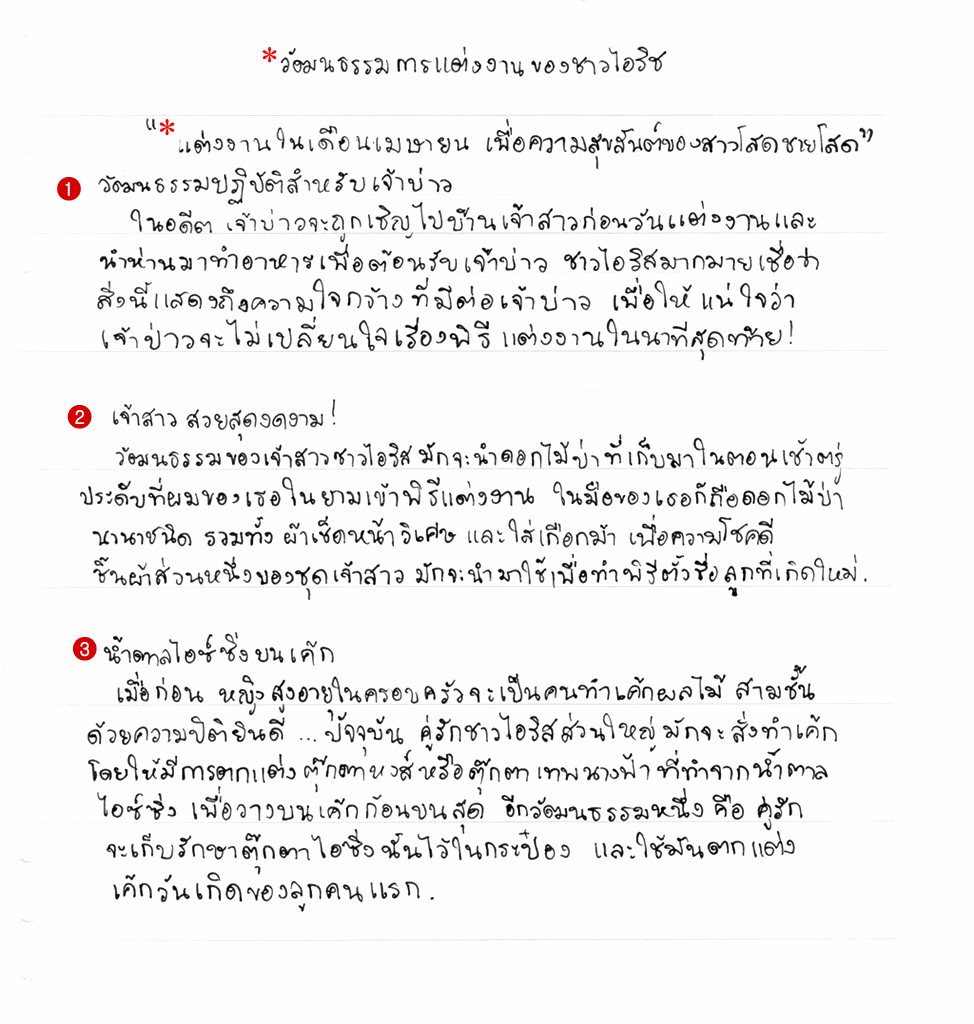 *วัฒนธรรมการแต่งงานของชาวไอริช
"*แต่งงานในเดือนเมษายน เพื่อความสุขสันต์ของสาวโสดชายโสด"
1 วัฒนธรรมปฏิบัติสำหรับเจ้าบ่าว
ในอดีต เจ้าบ่าวจะถูกเชิญไปบ้านเจ้าสาวก่อนวันแต่งงานและ
นำห่านมาทำอาหารเพื่อต้อนรับเจ้าบ่าว ชาวไอริสมากมายเชื่อว่า
สิ่งนี้แสดงถึงความใจกว้างที่มีต่อเจ้าบ่าว เพื่อให้แน่ใจว่า
เจ้าบ่าวจะไม่เปลี่ยนใจเรื่องพิธีแต่งงานในนาทีสุดท้าย!
2 เจ้าสาวสวยสุดงดงาม!
วัฒนธรรมของเจ้าสาวชาวไอริสมักจะนำดอกไม้ป่าที่เก็บมาในตอนเช้าตรู่
ประดับที่ผมของเธอในยามเข้าพิธีแต่งงาน ในมือของเธอก็ถือดอกไม้ป่า
นานาชนิด รวมทั้ง ผ้าเช็ดหน้าวิเศษ และใส่เกือกม้า เพื่อความโชคดี
ชิ้นผ้าส่วนหนึ่งของชุดเจ้าสาว มักจะนำมาใช้เพื่อทำพิธีตั้งชื่อลูกที่เกิดใหม่.
3 น้ำตาลไอซ์ซิ่งบนเค้ก
เมื่อก่อน หญิงสูงอายุในครอบครัวจะเป็นคนทำเค้กผลไม้ สามชั้น
ด้วยความปิติยินดี ...ปัจจุบัน คู่รักชาวไอริสส่วนใหญ่มักจะสั่งทำเค้ก
โดยให้มีการตกแต่งตุ๊กตาหงส์หรือตุ๊กตาเทพนางฟ้าที่ทำจากน้ำตาล
ไอซ์ซิ่ง เพื่อวางบนเค้กก้อนบนสุด อีกวัฒนธรรมหนึ่งคือ คู่รัก
จะเก็บรักษาตุ๊กตาไอซิ่งนั้นไว้ในกระป๋อง และใช้มันตกแต่ง
เค้กวันเกิดของลูกคนแรก.